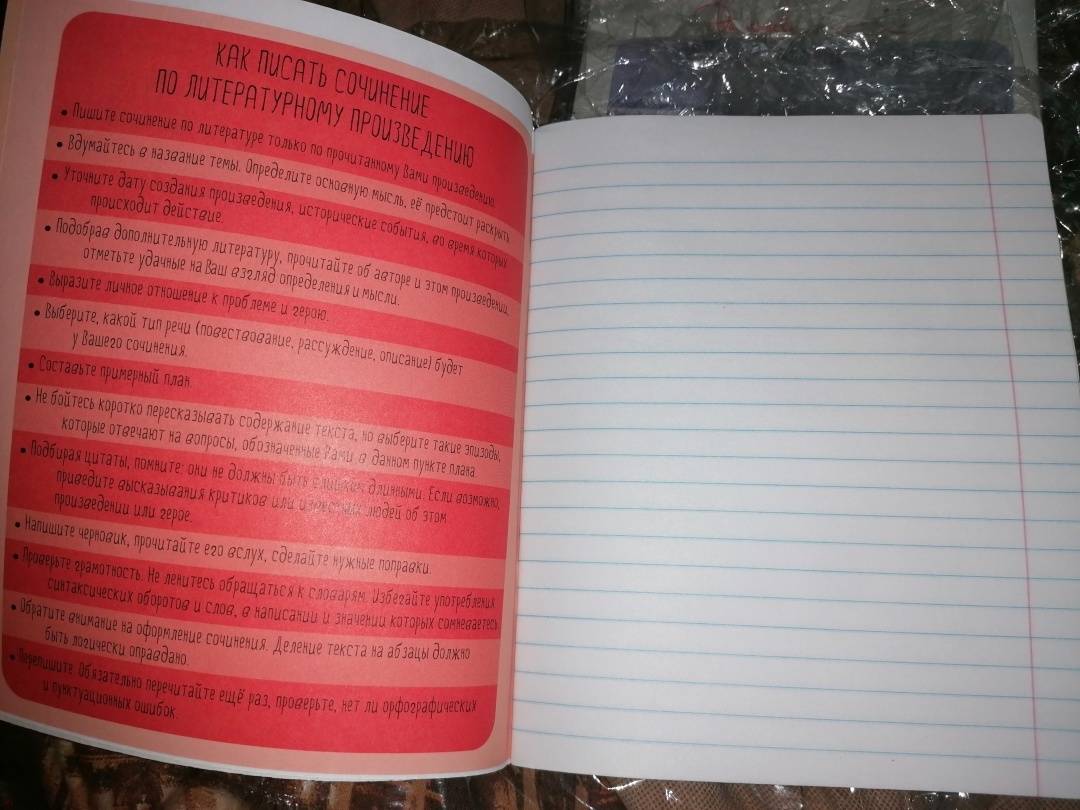 КАК ПИСАТЬ СОЧИНЕНИЕ
ПО ЛИТЕРАТУРНОМУ ПРОИЗВЕДЕНИЮ
• Пишите сочинение по литературе только по прочитанному Вами произведению.
• Вдумайтесь в название темы. Определите основную мысль, её предстоит раскрыть
• Уточните дату создания произведения, исторические события, во время которых
происходит действие.
• Подобрав дополнительную литературу, прочитайте об авторе и этом произведении,
отметьте удачные на Ваш взгляд определения и мысли.
• Выразите личное отношение к проблеме и герою.
• Выберите, какой тип речи (повествование, рассуждение, описание) будет
у Вашего сочинения.
• Составьте примерный план.
• Не бойтесь коротко пересказывать содержание текста, но выберите такие эпизоды,
которые отвечают на вопросы, обозначенные Вами в данном пункте плана.
• Подбирая цитаты, помните: они не должны быть слишком длинными. Если возможно,
приведите высказывания критиков или известных людей об этом
произведении или герое.
• Напишите черновик, прочитайте его вслух, сделайте нужные поправки.
• Проверьте грамотность. Не ленитесь обращаться к словарям. Избегайте употребления
синтаксических оборотов и слов, в написании и значении которых сомневаетесь
• Обратите внимание на оформление сочинения. Деление текста на абзацы должно
быть логически оправдано.
• Перепишите. Обязательно перечитайте ещё раз, проверьте, нет ли орфографических
и пунктуационных ошибок.